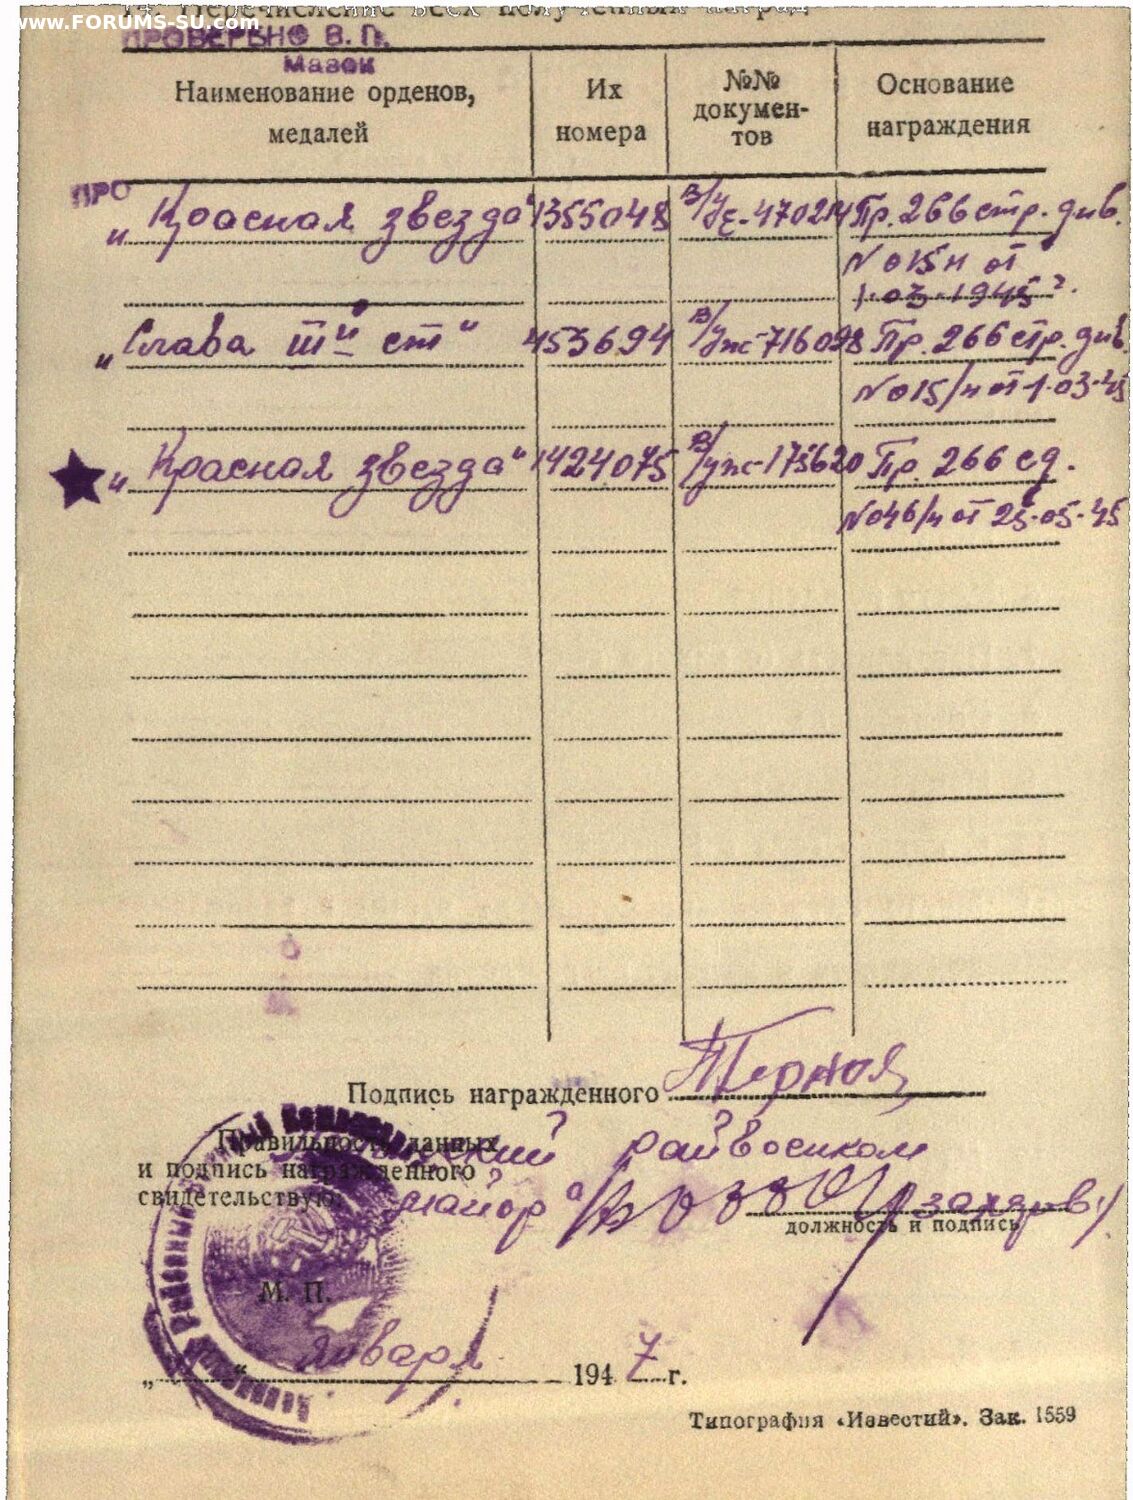 14. Перечисление всех полученных наград
www.FORUMS-SU.com
ПРОВЕРЕНО В. П.
Мазок
Наименование орденов, медалей
Их номера
№№ документов
Основание награждения
ПРО
„Красная звезда“ 1355048 В/у Е-470214 Пр. 266 стр. див.
N 015н от
1.03.1945 г.
„Слава IIIй ст“ 453694 В/у ж-716098 Пр. 266 стр. див.
N 015/н от 1.03.45
„Красная звезда“ 1424075 В/у ж-175620 Пр. 266 сд.
N 046/н от 25.05.45
Подпись награжденного
Правильность данных
и подпись награжденного
свидетельствую:
райвоенком
майор /Захаров/
должность и подпись
М. П.
„ “ января 1947 г.
Типография «Известий». Зак. 1559